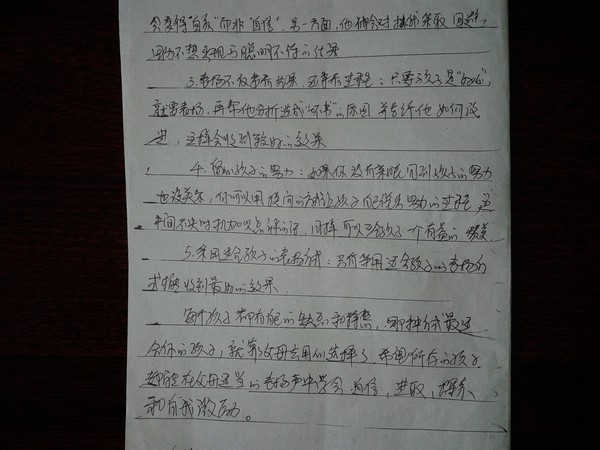 会变得"自负"而非"自信"，另一方面，他们会对挑战采取回避，
因为不想出现与聪明不符的结果
3.表扬不仅要看结果，还要看过程：只要孩子是"好心"，
就要表扬，再帮他分析造成"坏事"的原因并告诉他如何改
进，这样会收到较好的效果
4.留心孩子的努力：如果你没有亲眼见到孩子的努力
也没关系，你可以用提问的方式让孩子自己说出努力的过程
中间不失时机加以点评，同样可以给孩子一个有益的
5.采用适合孩子的表扬方式：只有采用适合孩子的表扬方
式才能收到最好的效果
每个孩子都有自己的缺点和特点，哪种方式最适
合你的孩子，就靠父母去用心选择了，希望所有的孩子
都能在父母适当的表扬声中学会自信，进取，探索
和自我激励。